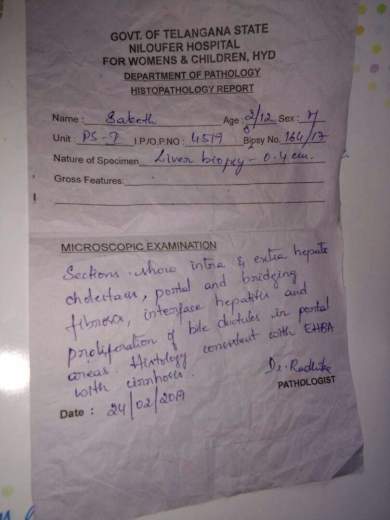 GOVT. OF TELANGANA STATE
NILOUFER HOSPITAL
FOR WOMENS & CHILDREN, HYD
DEPARTMENT OF PATHOLOGY
HISTOPATHOLOGY REPORT
Name : Saketh Age : 2/12 Sex : M
Unit PS-7 I.P/O.P.NO : 4519 Bipsy No. 164/17
Nature of Specimen Liver biopsy - 0.4 cm.
Gross Features:
MICROSCOPIC EXAMINATION
Sections show intra & extra hepatic
cholestasis, portal and bridging
fibrosis, interface hepatitis and
proliferation of bile ductules in portal
areas. Histology consistent with EHBA
with cirrhosis.
Dr. Radhika
PATHOLOGIST
Date : 24/02/2017